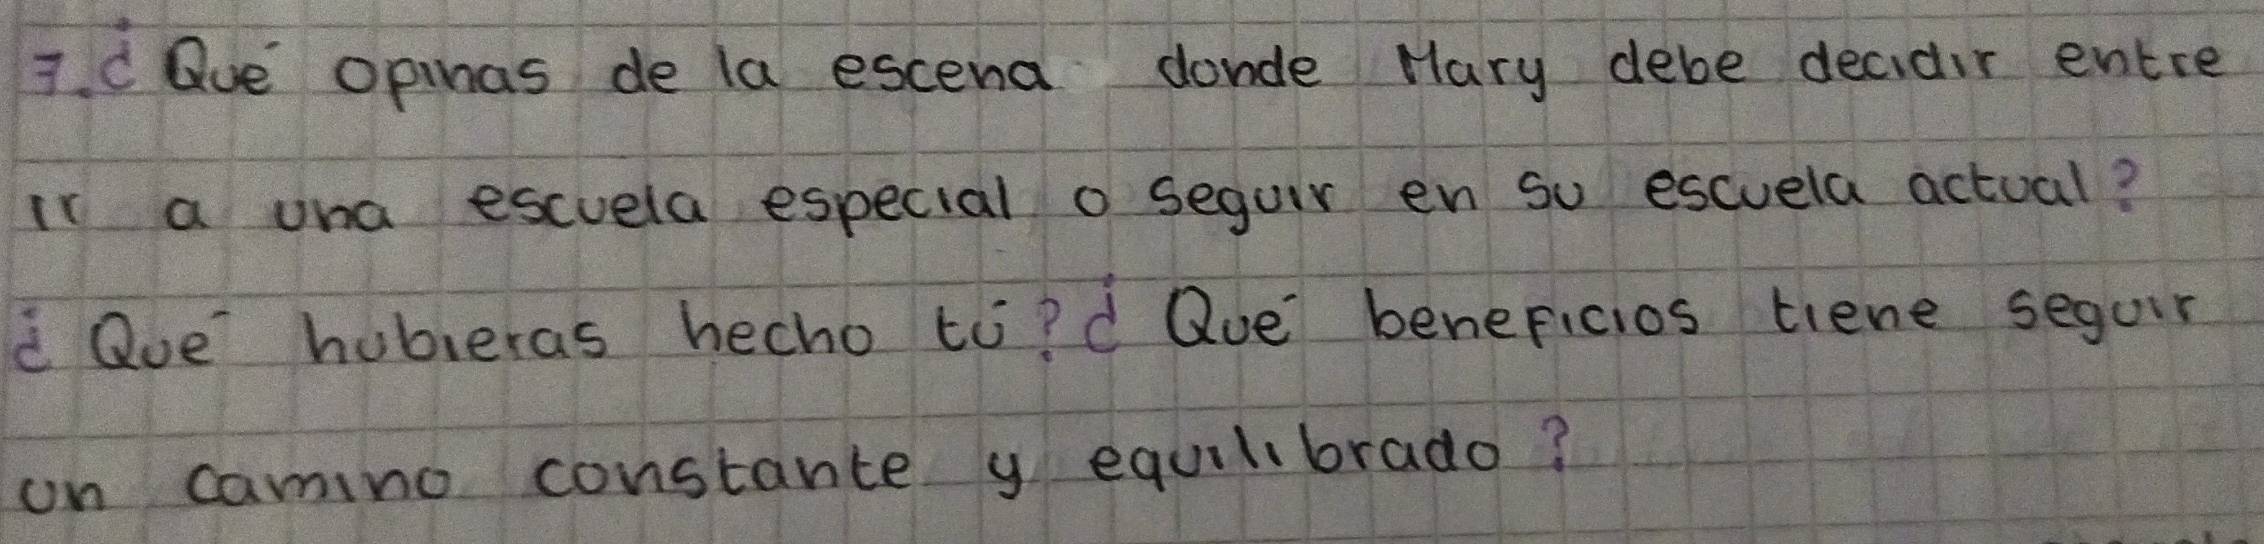 7. ¿Qué opinas de la escena donde Mary debe decidir entre
ir a una escuela especial o seguir en su escuela actual?
¿Qué hubieras hecho tú? ¿Qué beneficios tiene seguir
un camino constante y equilibrado?